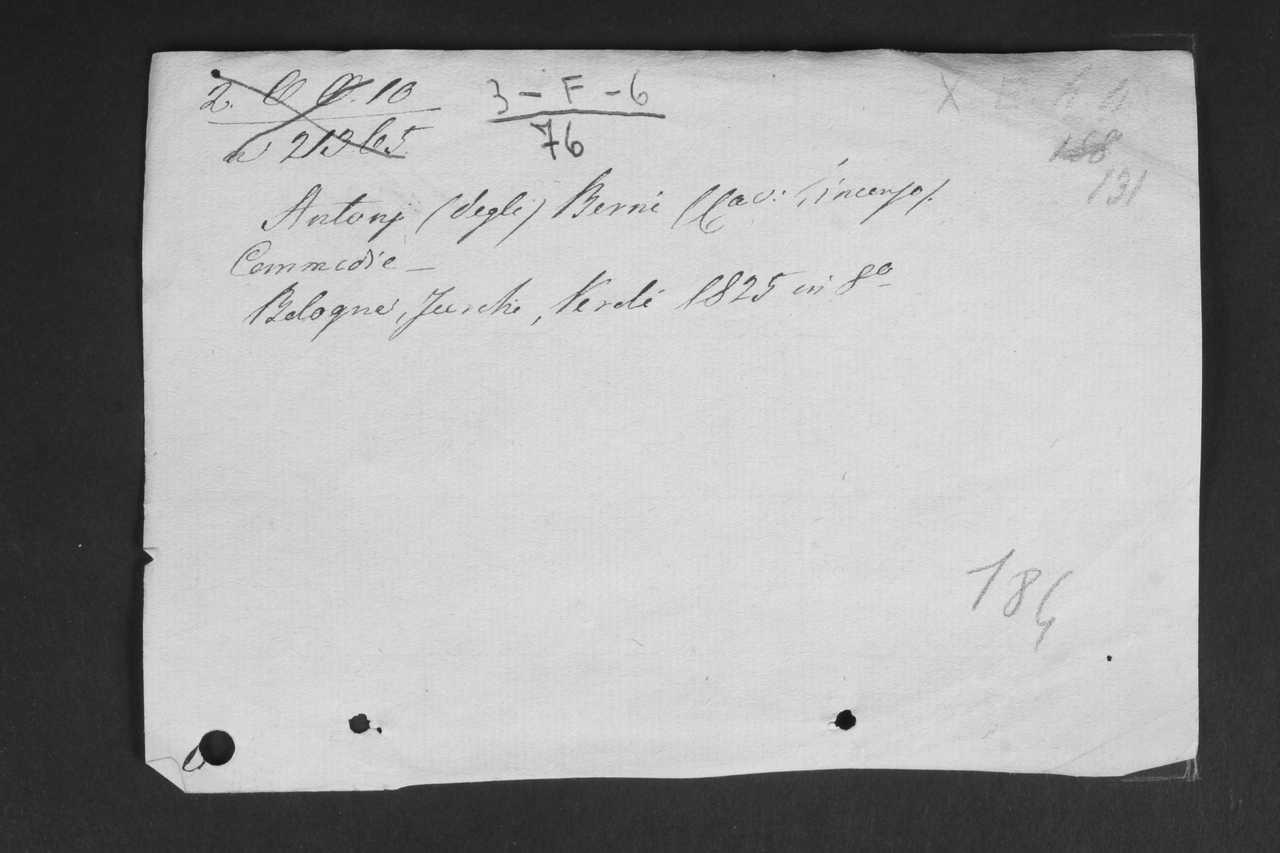 2. O O. 10
3 - F - 6
21365
76
X E
158
131
Antonj (degli) Berni (Cav: Vincenzo).
Commedie -
Bologna, Turchi, Verdi 1825 in 8º
184